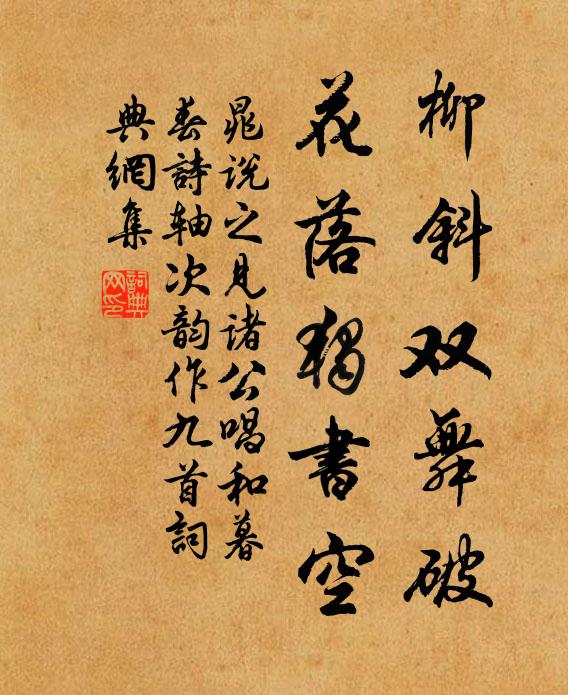 柳斜双舞破
花落独書空
晁说之见诸公唱和暮
春詩轴次韵作九首詞
典網集
詞典网印